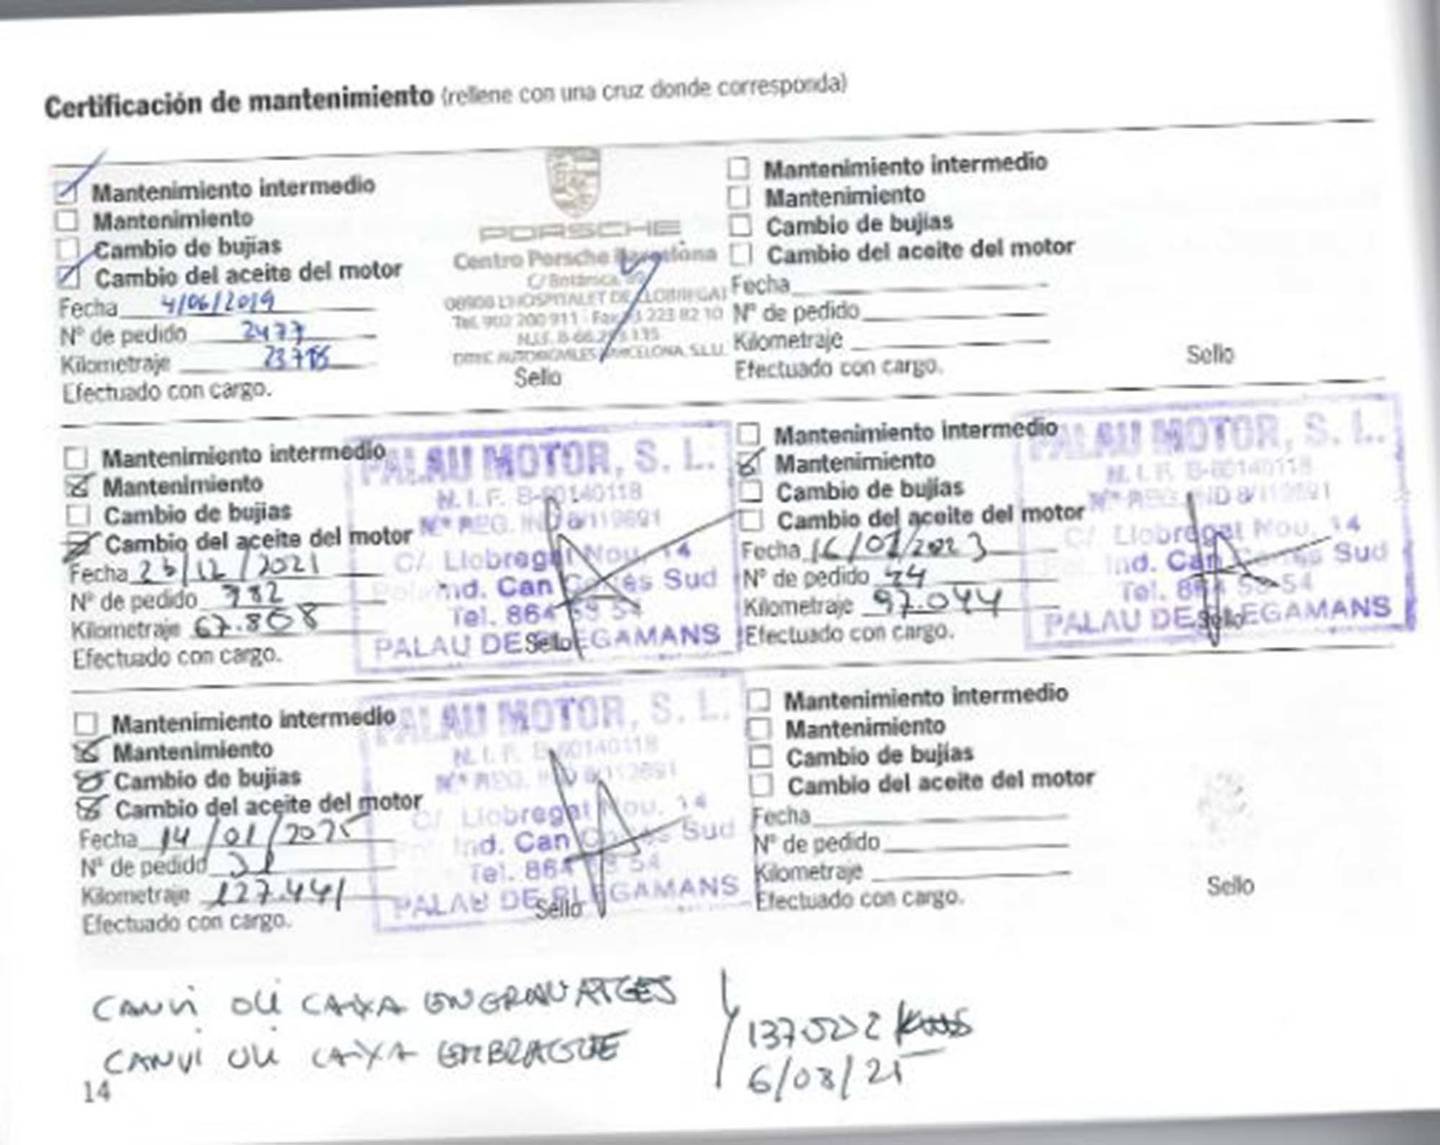 Certificación de mantenimiento (rellene con una cruz donde corresponda)
Mantenimiento intermedio
Mantenimiento
Cambio de bujías
Cambio del aceite del motor
Fecha 4/06/2019
Nº de pedido 2477
Kilometraje
Efectuado con cargo.
PORSCHE
Centro Porsche Barcelona
C/ Botánica
08908 L'HOSPITALET DE LLOBREGAT
Tel. 902 200 911 - Fax 93 223 82 10
N.I.F. B-66
AUTOMOVILES BARCELONA, S.L.U.
Sello
Mantenimiento intermedio
Mantenimiento
Cambio de bujías
Cambio del aceite del motor
Fecha
Nº de pedido
Kilometraje
Efectuado con cargo.
Sello
Mantenimiento intermedio
Mantenimiento
Cambio de bujías
Cambio del aceite del motor
Fecha 23/12/2021
Nº de pedido 782
Kilometraje 67.808
Efectuado con cargo.
PALAU MOTOR, S. L.
N. I. F. B-60140118
Nº REG. IND 8/119691
C/ Llobregat Nou, 14
Pol. Ind. Can Cortés Sud
Tel. 864 59 54
PALAU DE PLEGAMANS
Sello
Mantenimiento intermedio
Mantenimiento
Cambio de bujías
Cambio del aceite del motor
Fecha 16/01/2023
Nº de pedido 34
Kilometraje 97.044
Efectuado con cargo.
PALAU MOTOR, S. L.
N. I. F. B-60140118
Nº REG. IND 8/119691
C/ Llobregat Nou, 14
Pol. Ind. Can Cortés Sud
Tel. 864 59 54
PALAU DE PLEGAMANS
Sello
Mantenimiento intermedio
Mantenimiento
Cambio de bujías
Cambio del aceite del motor
Fecha 14/01/2025
Nº de pedido
Kilometraje 127.441
Efectuado con cargo.
PALAU MOTOR, S. L.
N. I. F. B-60140118
Nº REG. IND 8/119691
C/ Llobregat Nou, 14
Pol. Ind. Can Cortés Sud
Tel. 864 59 54
PALAU DE PLEGAMANS
Sello
Mantenimiento intermedio
Mantenimiento
Cambio de bujías
Cambio del aceite del motor
Fecha
Nº de pedido
Kilometraje
Efectuado con cargo.
Sello
CANVI OLI CAIXA ENGRANATGES
CANVI OLI CAIXA EMBRAGUE
KMS
6/08/25
14